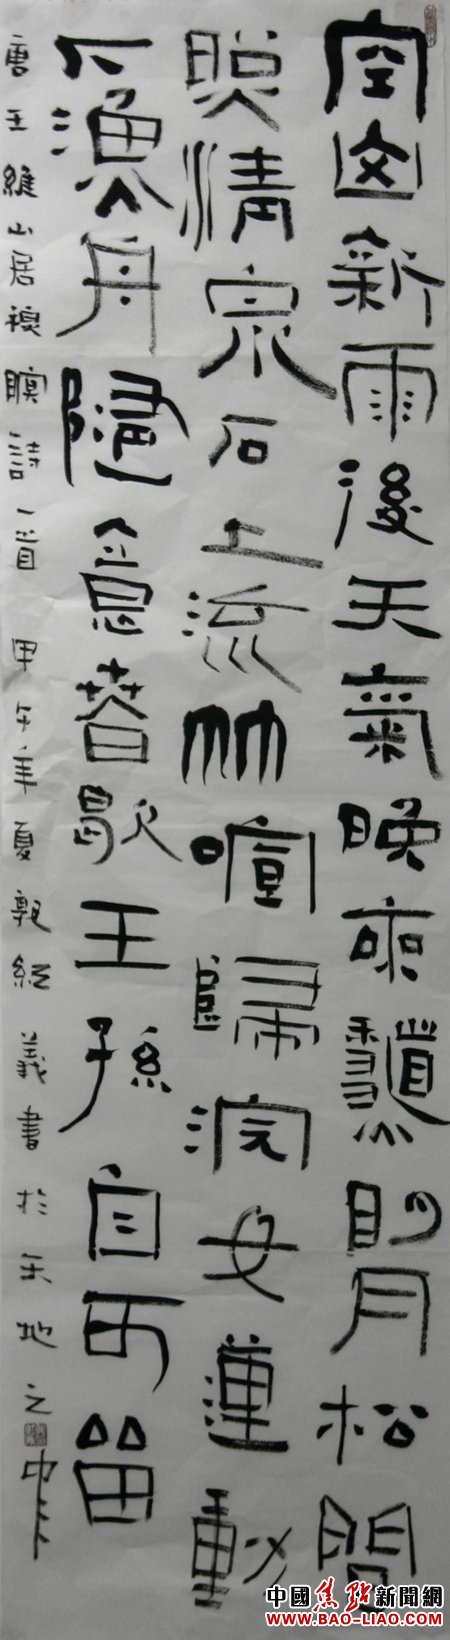 空山新雨後天氣晚來秋明月松間
照清泉石上流竹喧歸浣女蓮動
下漁舟隨意春歇王孫自可留
唐王維山居秋暝詩一首 甲午年夏郭經義書於天地之中
中國焦點新聞網
WWW.BAO-LIAO.COM